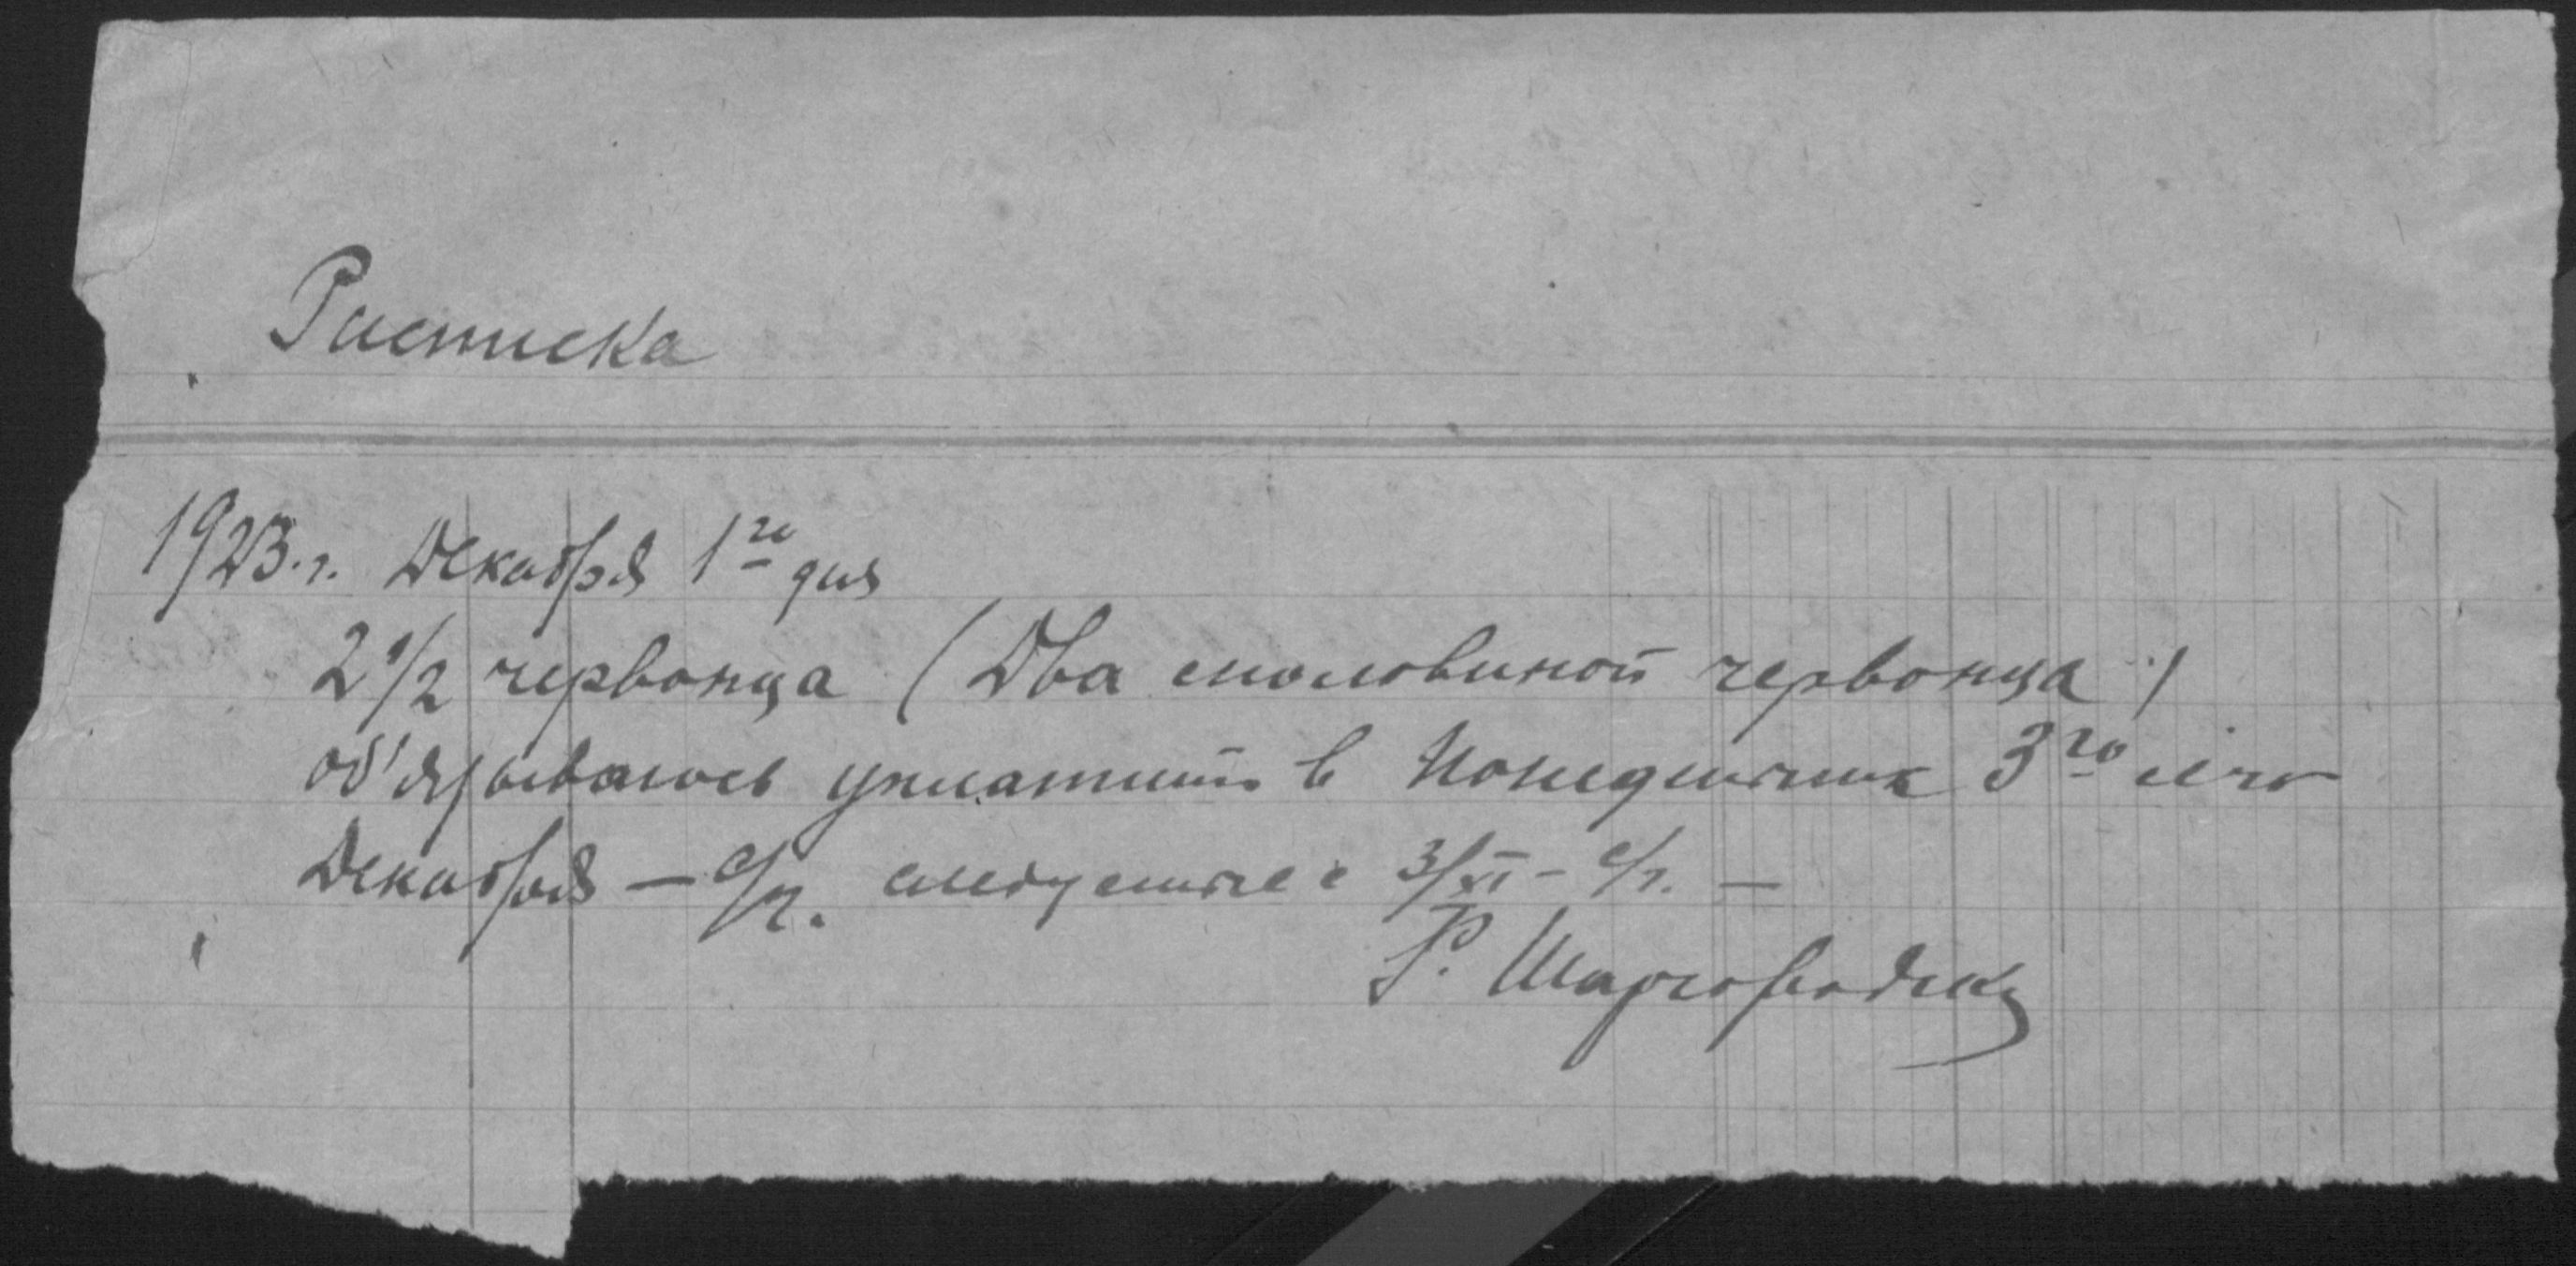 Расписка
1923.г. Декабря 1го дня
2 1/2 червонца (Два споловиной червонца)
об'язываюсь уплатить в Понедельник 3го сего
Декабря — с/г. 3/XI - с/г. —
Р. Шаргородск